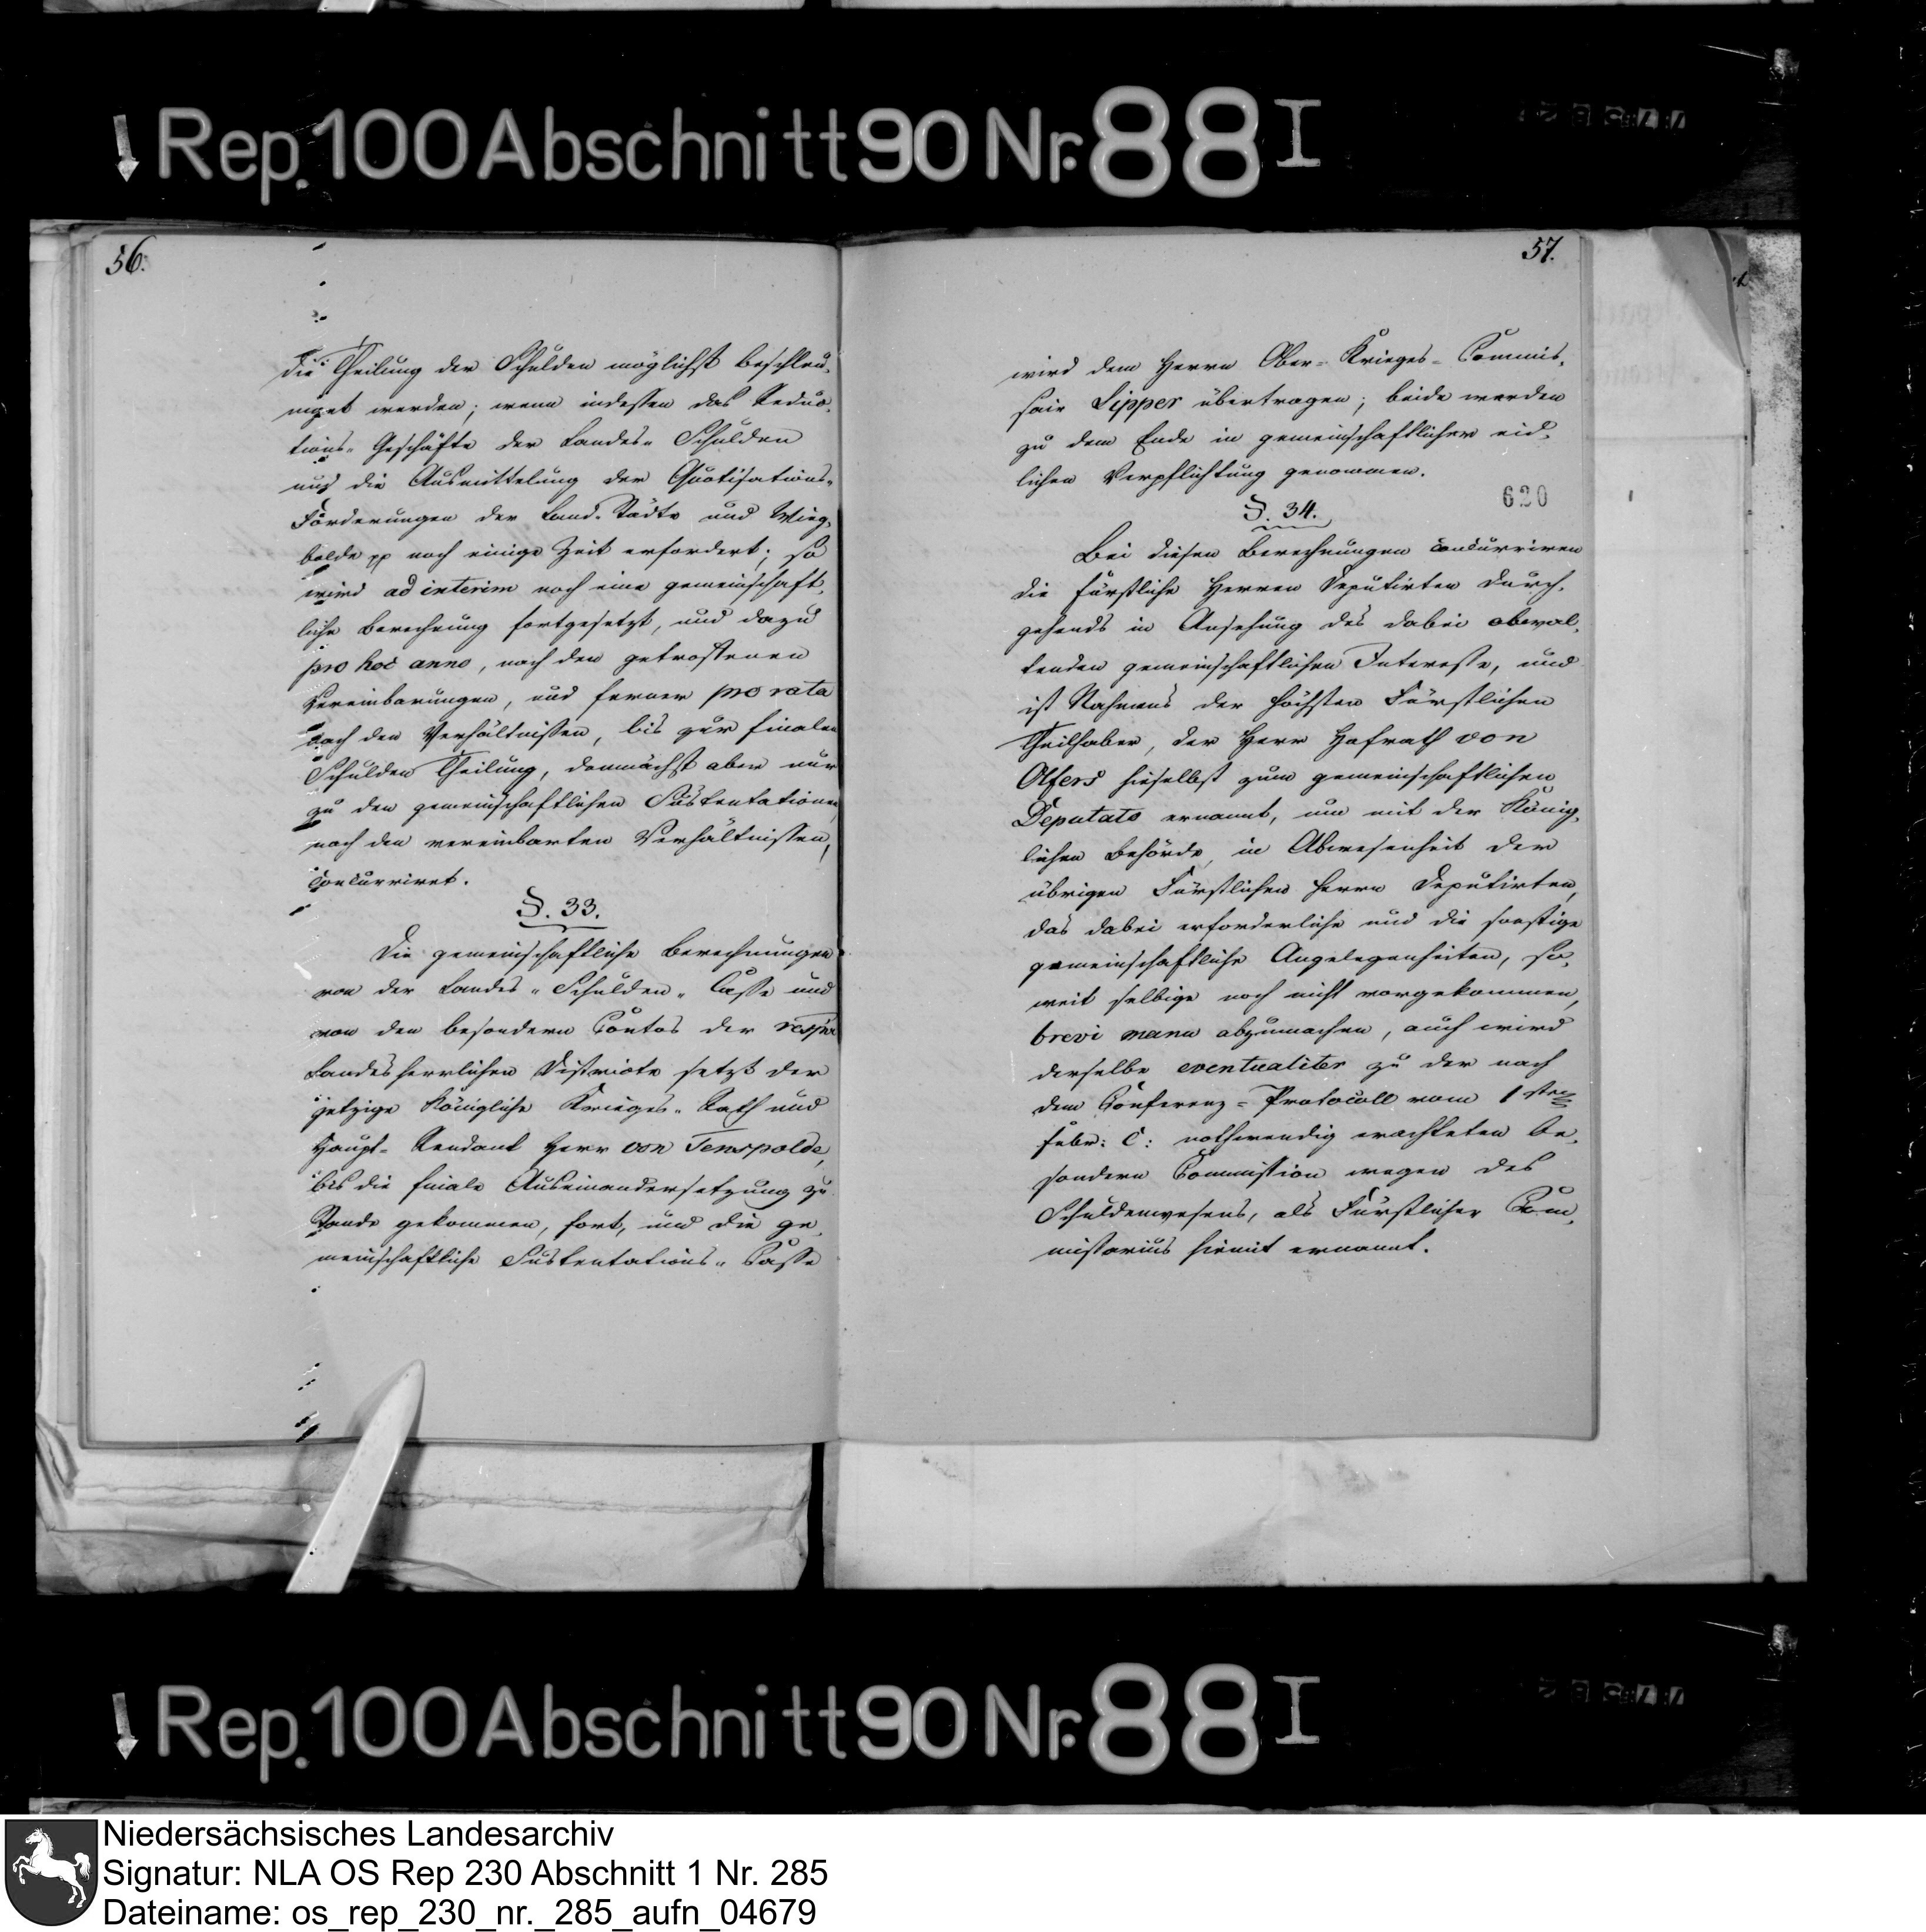 Rep. 100 Abschnitt 90 Nr. 88 I
56.
die Theilung der Schulden möglichst beschleu-
niget werden; wenn indessen das Reduc-
tions-Geschäfte der Landes-Schulden
und die Ausmittelung der Quotisations-
Forderungen der Land-Städte und Wieg-
bolde pp noch einige Zeit erfordert; so
wird ad interim noch eine gemeinschaft-
liche Berechnung fortgesetzt, und dazu
pro hoc anno, nach den getroffenen
Vereinbarungen, und ferner pro rata
nach den Verhältnissen, bis zur finalen
Schulden Theilung, demnächst aber nur
zu den gemeinschaftlichen Sustentationen
nach den vereinbarten Verhältnissen,
concurriret.
§. 33.
Die gemeinschaftliche Berechnungen
von der Landes-Schulden-Casse und
von den besondern Contos der respve
Landesherrlichen Districte setzt der
jetzige Königliche Krieges-Rath und
Haupt-Rendant Herr von Tenspolde,
bis die finale Auseinandersetzung zu
Stande gekommen, fort, und die ge-
meinschaftliche Sustentations-Casse
57.
wird dem Herrn Ober-Krieges-Commis-
sair Lipper übertragen; beide werden
zu dem Ende in gemeinschaftlicher eid-
lichen Verpflichtung genommen.
620
§. 34.
Bei diesen Berechnungen concurriren
die Fürstliche Herren Deputirten durch-
gehends in Ansehung des dabei obwal-
tenden gemeinschaftlichen Interesse, und
ist Nahmens der höchsten Fürstlichen
Theilhaber, der Herr Hofrath von
Olfers hieselbst zum gemeinschaftlichen
Deputato ernannt, um mit der König-
lichen Behörde, in Abwesenheit der
übrigen Fürstlichen Herrn Deputirten,
das dabei erforderliche und die sonstige
gemeinschaftliche Angelegenheiten, so-
weit selbige noch nicht vorgekommen,
brevi manu abzumachen, auch wird
derselbe eventualiter zu der nach
dem Conferenz-Protocoll vom 1sten
Febr: c: nothwendig erachteten be-
sondern Commission wegen des
Schuldenwesens, als Fürstlicher Com-
missarius hiemit ernannt.
Rep. 100 Abschnitt 90 Nr. 88 I
Niedersächsisches Landesarchiv
Signatur: NLA OS Rep 230 Abschnitt 1 Nr. 285
Dateiname: os_rep_230_nr._285_aufn_04679